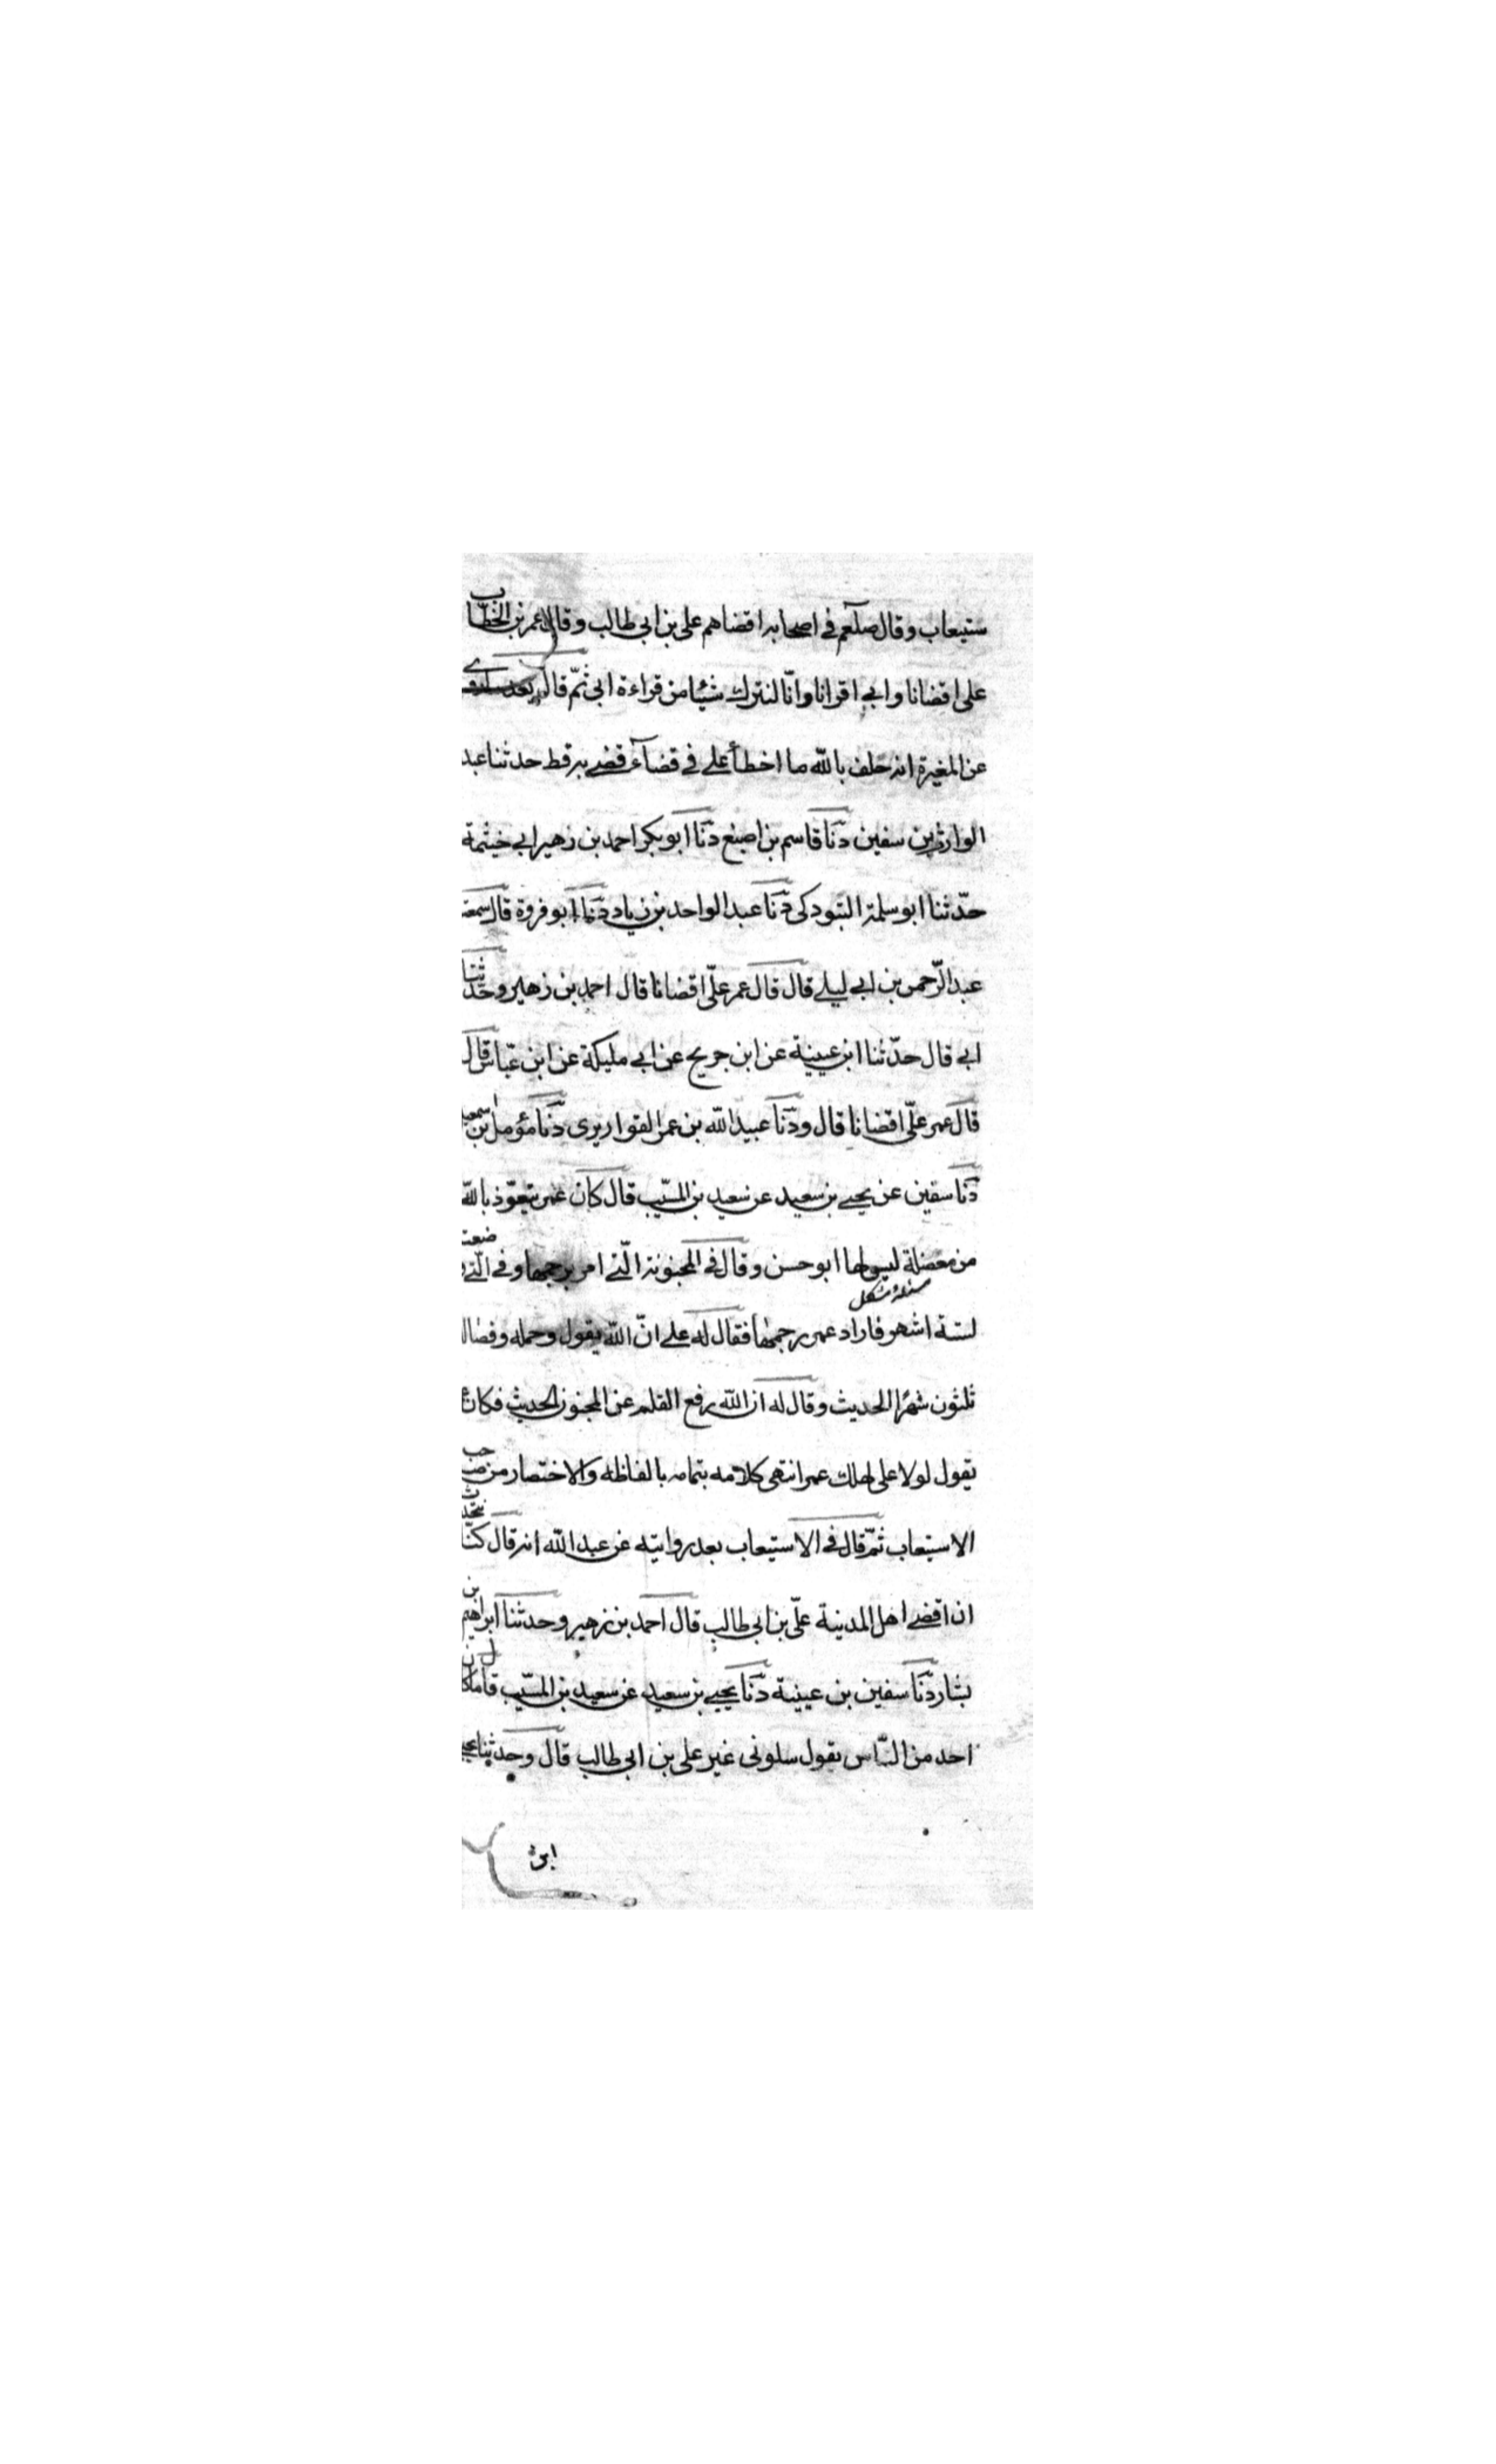 ستيعاب وقال صلعم في اصحابه اقضاهم على بن ابى طالب وقال عمر بن الخطاب
على اقضانا وابي اقرانا وانّا لنترك شيئا من قراءة ابى ثمّ قال بعد
عن المغيرة انه حلف بالله ما اخطأ علي في قضآء قضى به قط حدثنا عبد
الوارث بن سفين دثنا قاسم بن اصبغ دثنا ابو بكر احمد بن زهير ابي خيثمة
حدّثنا ابو سلمة التبوذكى دثنا عبد الواحد بن زياد دثنا ابو فروة قال سمعت
عبد الرّحمن بن ابي ليلى قال قال عمر علّى اقضانا قال احمد بن زهير وحدثنا
ابي قال حدّثنا ابن عيينة عن ابن جريج عن ابي مليكة عن ابن عبّاس قال
قال عمر علّى اقضانا قال ودثنا عبيد الله بن عمر القواريرى دثنا مؤمل بن اسمعيل
دثنا سفين عن يحيى بن سعيد عن سعيد بن المسيّب قال كان عمر يتعوّذ بالله
من معضلة ليس لها ابو حسن وقال في المجنونة الّتي امر برجمها وفي الّتي وضعت
مسئلة مشكل
لستة اشهر فاراد عمر رجمها فقال له علي انّ الله يقول وحمله وفصاله
ثلثون شهرًا الحديث وقال له ان الله رفع القلم عن المجنون الحديث فكان
يقول لولا على لهلك عمر انتهى كلامه بتمامه بالفاظه والاختصار من صاحب
الاستيعاب ثمّ قال في الاستيعاب بعد روايته عن عبد الله انه قال كنّا نتحدث
ان اقضى اهل المدينة علّى بن ابى طالب قال احمد بن زهير وحدثنا ابراهيم بن
بشار دثنا سفين بن عيينة دثنا يحيى بن سعيد عن سعيد بن المسيّب قال ما كان
احد من النّاس يقول سلونى غير على بن ابى طالب قال وحدثنا يحيى
ابن